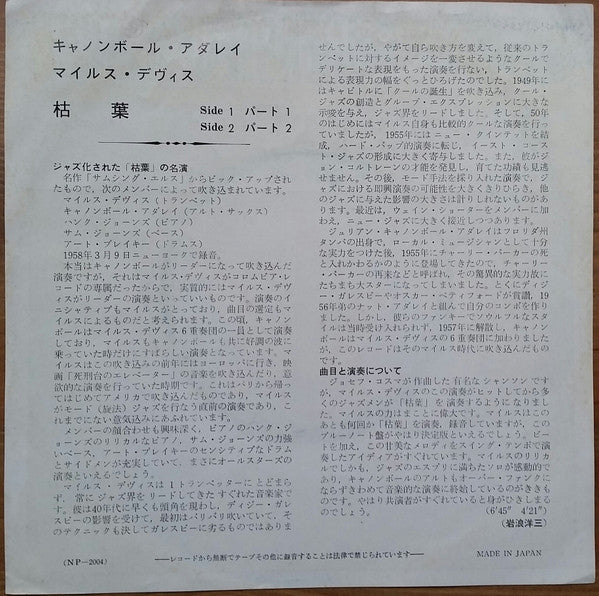 キャノンボール・アダレイ
マイルス・デヴィス
枯葉 Side 1 パート 1
Side 2 パート 2
ジャズ化された「枯葉」の名演
名作「サムシング・エルス」からピック・アップされ
たもので、次のメンバーによって吹き込まれています。
マイルス・デヴィス（トランペット）
キャノンボール・アダレイ（アルト・サックス）
ハンク・ジョーンズ（ピアノ）
サム・ジョーンズ（ベース）
アート・ブレイキー（ドラムス）
1958年3月9日ニューヨークで録音。
本当はキャノンボールがリーダーになって吹き込んだ
演奏ですが、それはマイルス・デヴィスがコロムビア・レ
コードの専属だったからで、実質的にはマイルス・デヴ
ィスがリーダーの演奏といっていいものです。演奏のイ
ニシャティブもマイルスがとっており、曲目の選定もマ
イルスによるものだと考えられます。この頃、キャノン
ボールはマイルス・デヴィス6重奏団の一員として演奏
しており、マイルスもキャノンボールも共に好調の波に
乗っていた時だけにすばらしい演奏となっています。マ
イルスはこの吹き込みの前年にはヨーロッパに行き、映
画「死刑台のエレベーター」の音楽を吹き込んだり、意
欲的な演奏を行っていた時期です。これはパリから帰っ
てはじめてアメリカで吹き込んだものであり、マイルス
がモード（旋法）ジャズを行なう直前の演奏であり、こ
れまでにない意気込みにあふれています。
メンバーの顔合わせも興味深く、ピアノのハンク・ジ
ョーンズのリリカルなピアノ、サム・ジョーンズの力強
いベース、アート・ブレイキーのセンシティブなドラム
とサイドメンが充実していて、まさにオールスターズの
演奏といえるでしょう。
マイルス・デヴィスは1トランペッターにとどまら
ず、常にジャズ界をリードしてきたすぐれた音楽家で
す。彼は40年代に早くも頭角を現わし、ディジー・ガレ
スピーの影響を受けて、最初はバリバリ吹いていて、そ
のテクニックも決してガレスピーに劣るものではありま
せんでしたが、やがて自ら吹き方を変えて、従来のトラ
ンペットに対するイメージを一変させるようなクールで
デリケートな表現をもった演奏を行ない、トランペット
による表現力の幅をぐっとひろげたのでした。1949年
にはキャピトルに「クールの誕生」を吹き込み、クール・
ジャズの創造とグループ・エクスプレッションに大きな
示唆を与え、ジャズ界をリードしました。そして、50年
のはじめにはマイルス自身も比較的クールな演奏を行っ
ていましたが、1955年にはニュー・クインテットを結
成、ハード・バップ的演奏に転じ、イースト・コース
ト・ジャズの形成に大きく寄与しました。また、彼がジ
ョン・コルトレーンの才能を発見し、育てた功績も見逃
せません。その後、モード手法を採り入れた演奏で、ジ
ャズにおける即興演奏の可能性を大きくきりひらき、他
のジャズに与えた影響の大きさは計りしれないものがあ
ります。最近は、ウェイン・ショーターをメンバーに加
えれ、ニュー・ジャズに大きく接近しつつあります。
ジュリアン・キャノンボール・アダレイはフロリダ州
タンパの出身で、ローカル・ミュージシャンとして十分
な実力をつけた後、1955年にチャーリー・パーカーの死
と入れかわるかのように登場してきたので、チャーリ
ー・パーカーの再来などと呼ばれ、その驚異的な実力故に
たちまち大スターになってしまいました。とくにディジ
ー・ガレスピーやオスカー・ペティフォードが賞讃、19
56年弟のナット・アダレイと組んで自分のコンボを作り
ました。しかし、彼らのファンキーでソウルフルなスタ
イルは当時受け入れられず、1957年に解散し、キャノン
ボールはマイルス・デヴィスの6重奏団に加わりました
が、このレコードはそのマイルス時代に吹き込んだもの
です。
曲目と演奏について
ジョセフ・コスマが作曲した有名なシャンソンです
が、マイルス・デヴィスのこの演奏がヒットしてから多
くのジャズメンが「枯葉」を演奏するようになりまし
た。マイルスの力はまことに偉大です。マイルスはこの
あとも何回か「枯葉」を演奏、録音していますが、この
ブルーノート盤がやはり決定版といえるでしょう。ビー
トを加え、この甘美なメロディをスイング・テンポで演
奏したアイディアがすぐれています。マイルスのリリカ
ルでしかも、ジャズのエスプリに満ちたソロが感動的で
あり、キャノンボールのアルトもオーバー・ファンクに
ならずきわめて音楽的な演奏に終始しているのがききも
のです。やはり共演者がすぐれていると身がひきしまる
のでしょう。 (6′45″ 4′21″)
（岩浪洋三）
(NP—2004)
——レコードから無断でテープその他に録音することは法律で禁じられています——
MADE IN JAPAN